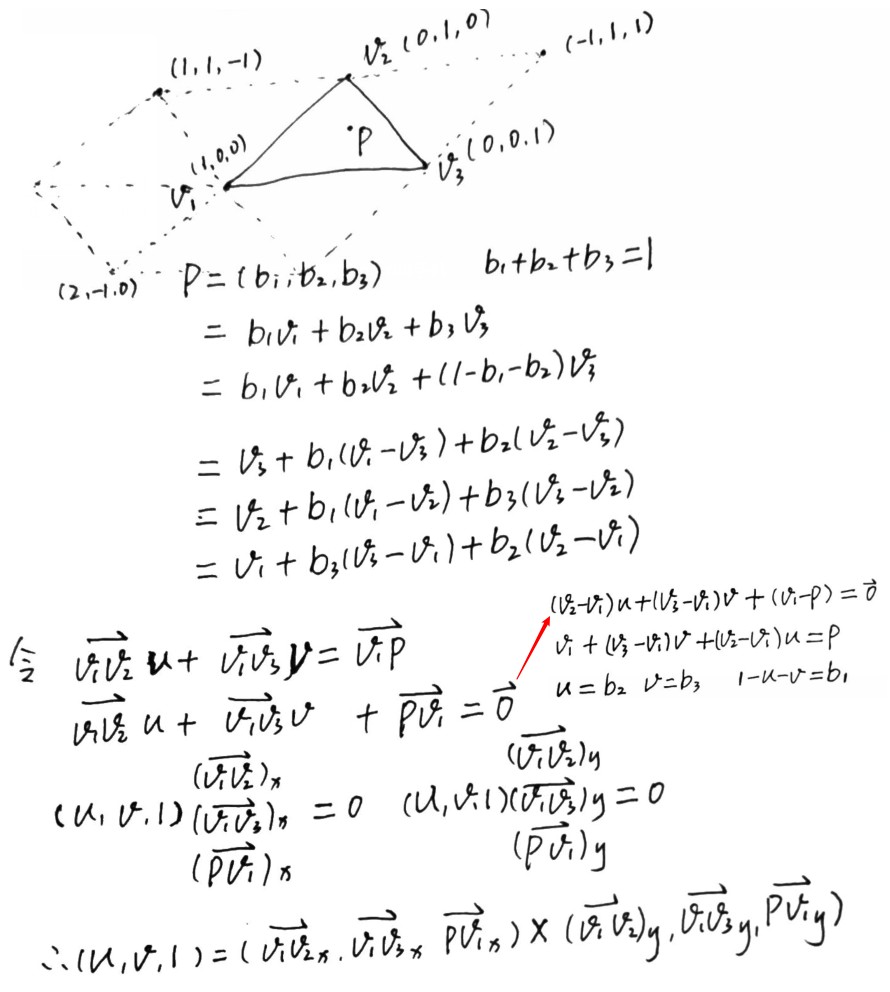 (1,1,-1)
v₂ (0,1,0)
(-1,1,1)
P
(1,0,0)
v₁
v₃ (0,0.1)
(2,-1.0)
P=(b₁,b₂,b₃)   b₁+b₂+b₃=1
= b₁v₁+b₂v₂+b₃v₃
= b₁v₁+b₂v₂+(1-b₁-b₂)v₃
= v₃+b₁(v₁-v₃)+b₂(v₂-v₃)
= v₂+b₁(v₁-v₂)+b₃(v₃-v₂)
= v₁+b₃(v₃-v₁)+b₂(v₂-v₁)
(v₂-v₁)u+(v₃-v₁)v+(v₁-p)=0⃗
v₁+(v₃-v₁)v+(v₂-v₁)u=P
u=b₂ v=b₃ 1-u-v=b₁
令 v₁v₂⃗ u+ v₁v₃⃗ v= v₁P⃗
v₁v₂⃗ u+ v₁v₃⃗ v + Pv₁⃗ =0⃗
(v₁v₂⃗)x
(u,v,1)(v₁v₃⃗)x =0
(Pv₁⃗)x
(v₁v₂⃗)y
(u,v.1)(v₁v₃⃗)y=0
(Pv₁⃗)y
∴(u,v,1)=(v₁v₂⃗x, v₁v₃⃗x Pv₁⃗x)×(v₁v₂⃗)y, v₁v₃⃗y, Pv₁⃗y)